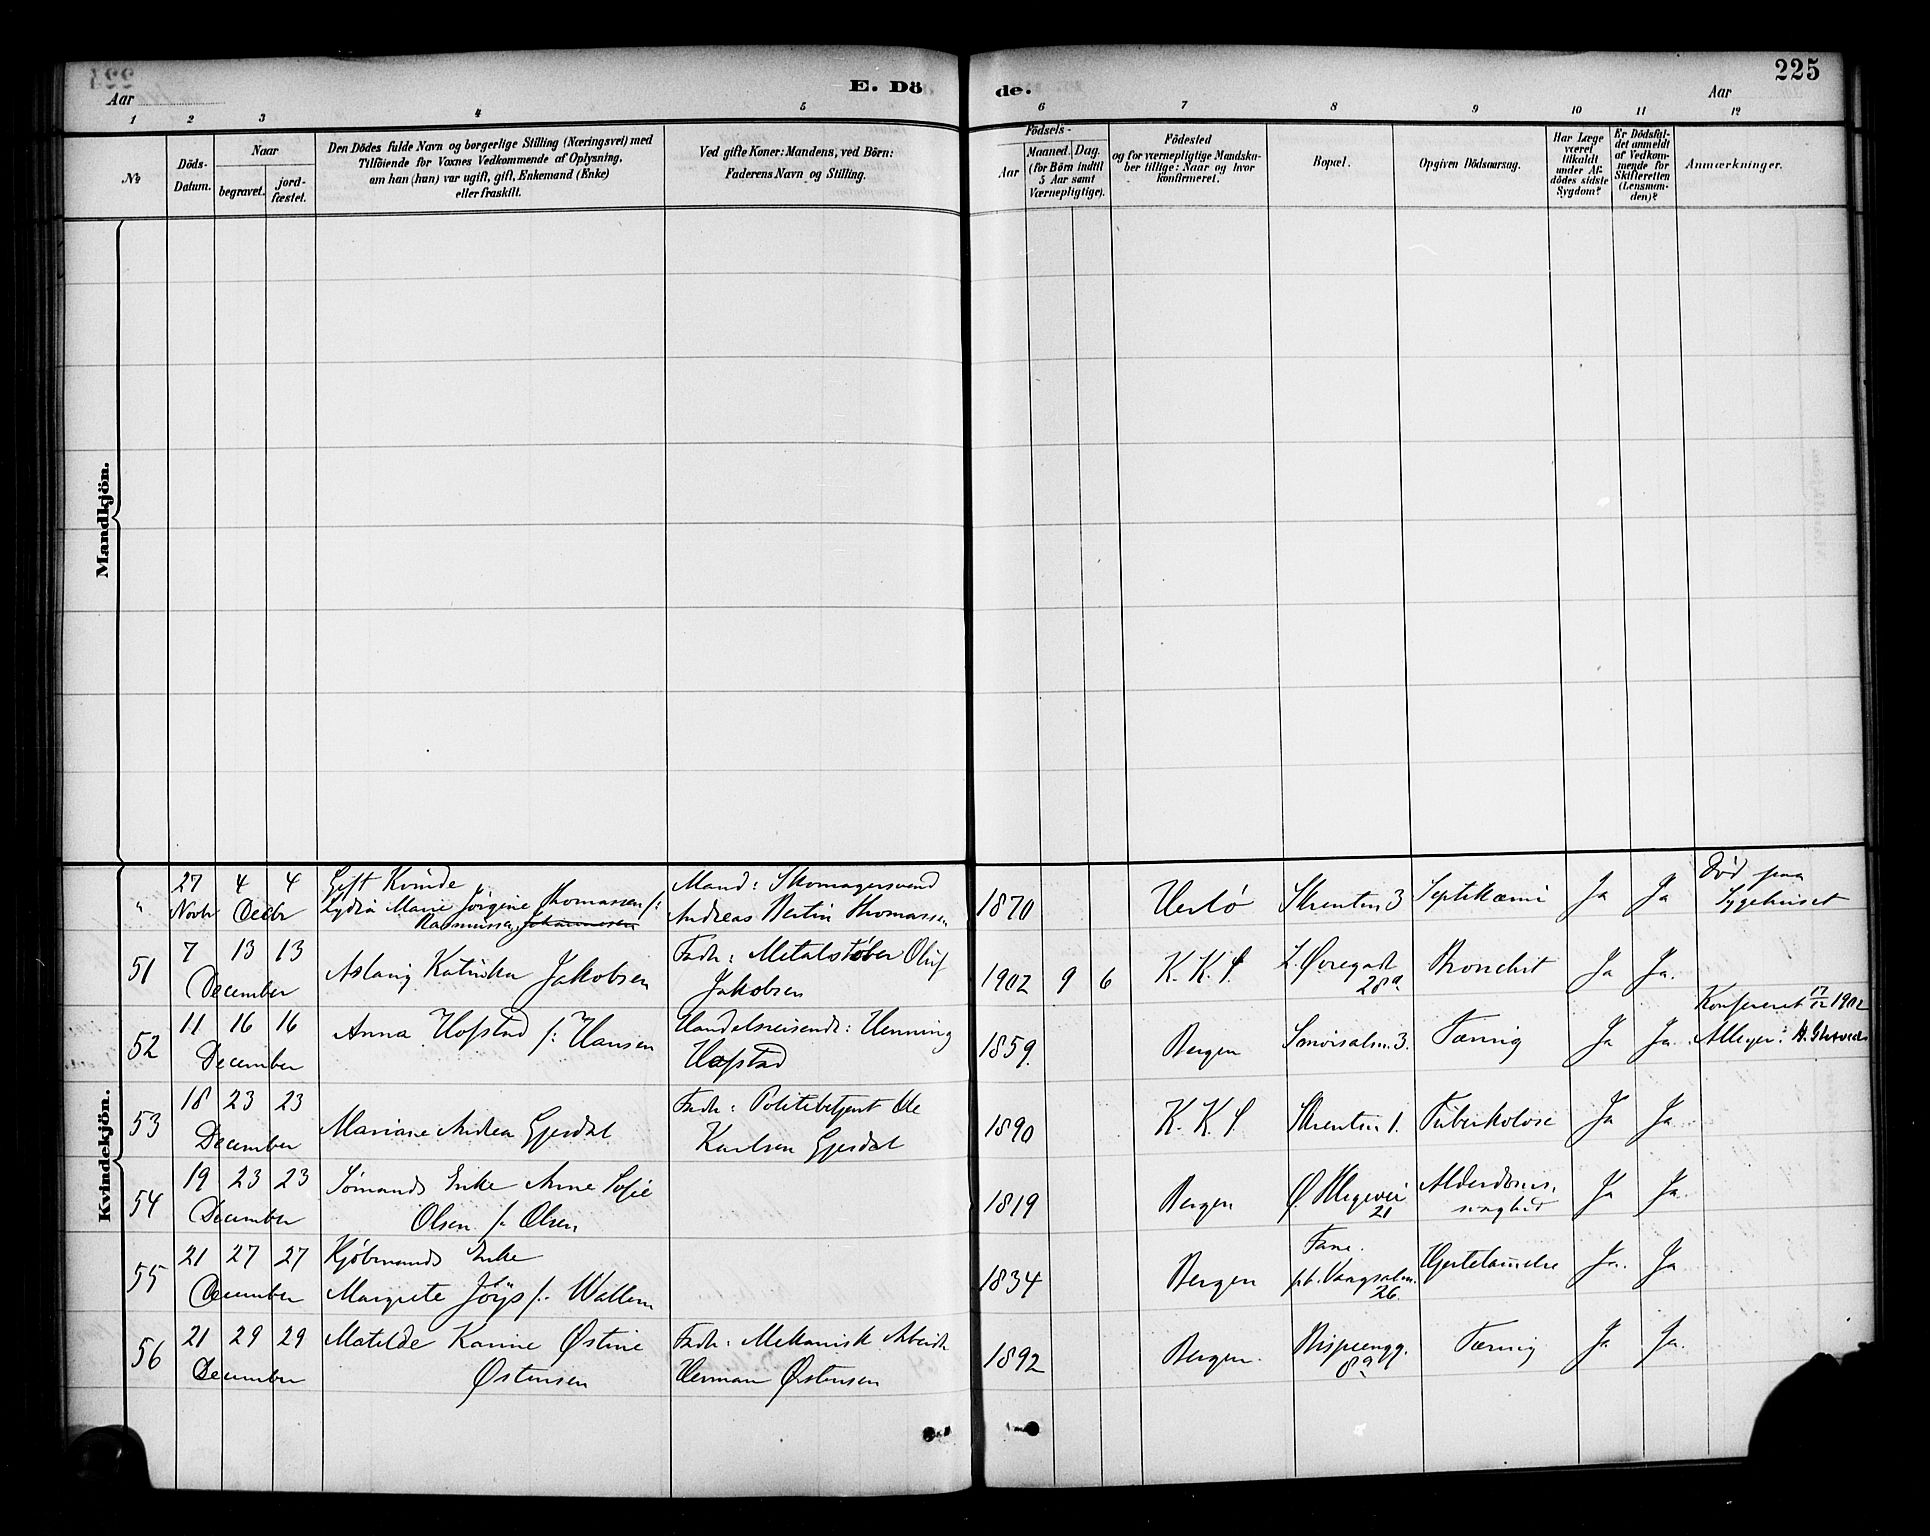 225
Aar
E. Dö
de.
Aar
1 2 3 4 5 6 7 8 9 10 11 12
№
Döds-
Datum.
Naar
begravet.
jord-
fæstet.
Den Dödes fulde Navn og borgerlige Stilling (Næringsvei) med
Tilföiende for Voxnes Vedkommende af Oplysning,
om han (hun) var ugift, gift, Enkemand (Enke)
eller fraskilt.
Ved gifte Koner: Mandens, ved Börn:
Faderens Navn og Stilling.
Födsels-
Aar
Maaned. Dag.
(for Börn indtil
5 Aar samt
Værnepligtige).
Födested
og for værnepligtige Mandska-
ber tillige: Naar og hvor
konfirmeret.
Bopæl.
Opgiven Dödsaarsag.
Har Læge
været
tilkaldt
under Af-
dödes sidste
Sygdom?
Er Dödsfal-
det anmeldt
af Vedkom-
mende for
Skifteretten
(Lensman-
den)?
Anmærkninger.
Mandkjön.
Kvindekjön.
" 27 4 4 Gift Kvinde Mand: Skomagersvend Död paa
Novbr Decbr Lydia Marie Jörgine Thomassen f: Andreas Bertin Thomassen 1870 Herlö Skrenten 3 Septikæmi Ja Ja Sygehuset
Rasmussen Johannesen
51 7 13 13 Fadr: Metalstöber Oluf
December Aslaug Katinka Jakobsen Jakobsen 1902 9 6 K. K. S. L. Øvregade 28a Bronchit Ja Ja.
52 11 16 16 Anna Hofstad f: Hansen Handelsreisende: Henning Konfereret 17/12 1902
December Hofstad 1859. Bergen 3. Tæring Ja Ja.
53 18 23 23 Fadr: Politibetjent Ole
December Mariane Andrea Gjerdal Karlsen Gjerdal 1890 K. K. S Skrenten 1. Tuberkolose Ja Ja
54 19 23 23 Sömands Enke Anne Sofie
December Olsen f: Olsen 1819 Bergen Ø. Blegevei 21 Alderdoms- svaghed Ja Ja.
55 21 27 27 Kjöbmands Enke Fane.
December Margrete Jöys f: Wallem 1834 Bergen 26. Hjertelamelse Ja. Ja
56 21 29 29 Matilde Karine Østine Fadr: Mekanisk Arbeider
December Østensen Herman Østensen 1892 Bergen. Bispeengg. 8a Tæring Ja Ja.